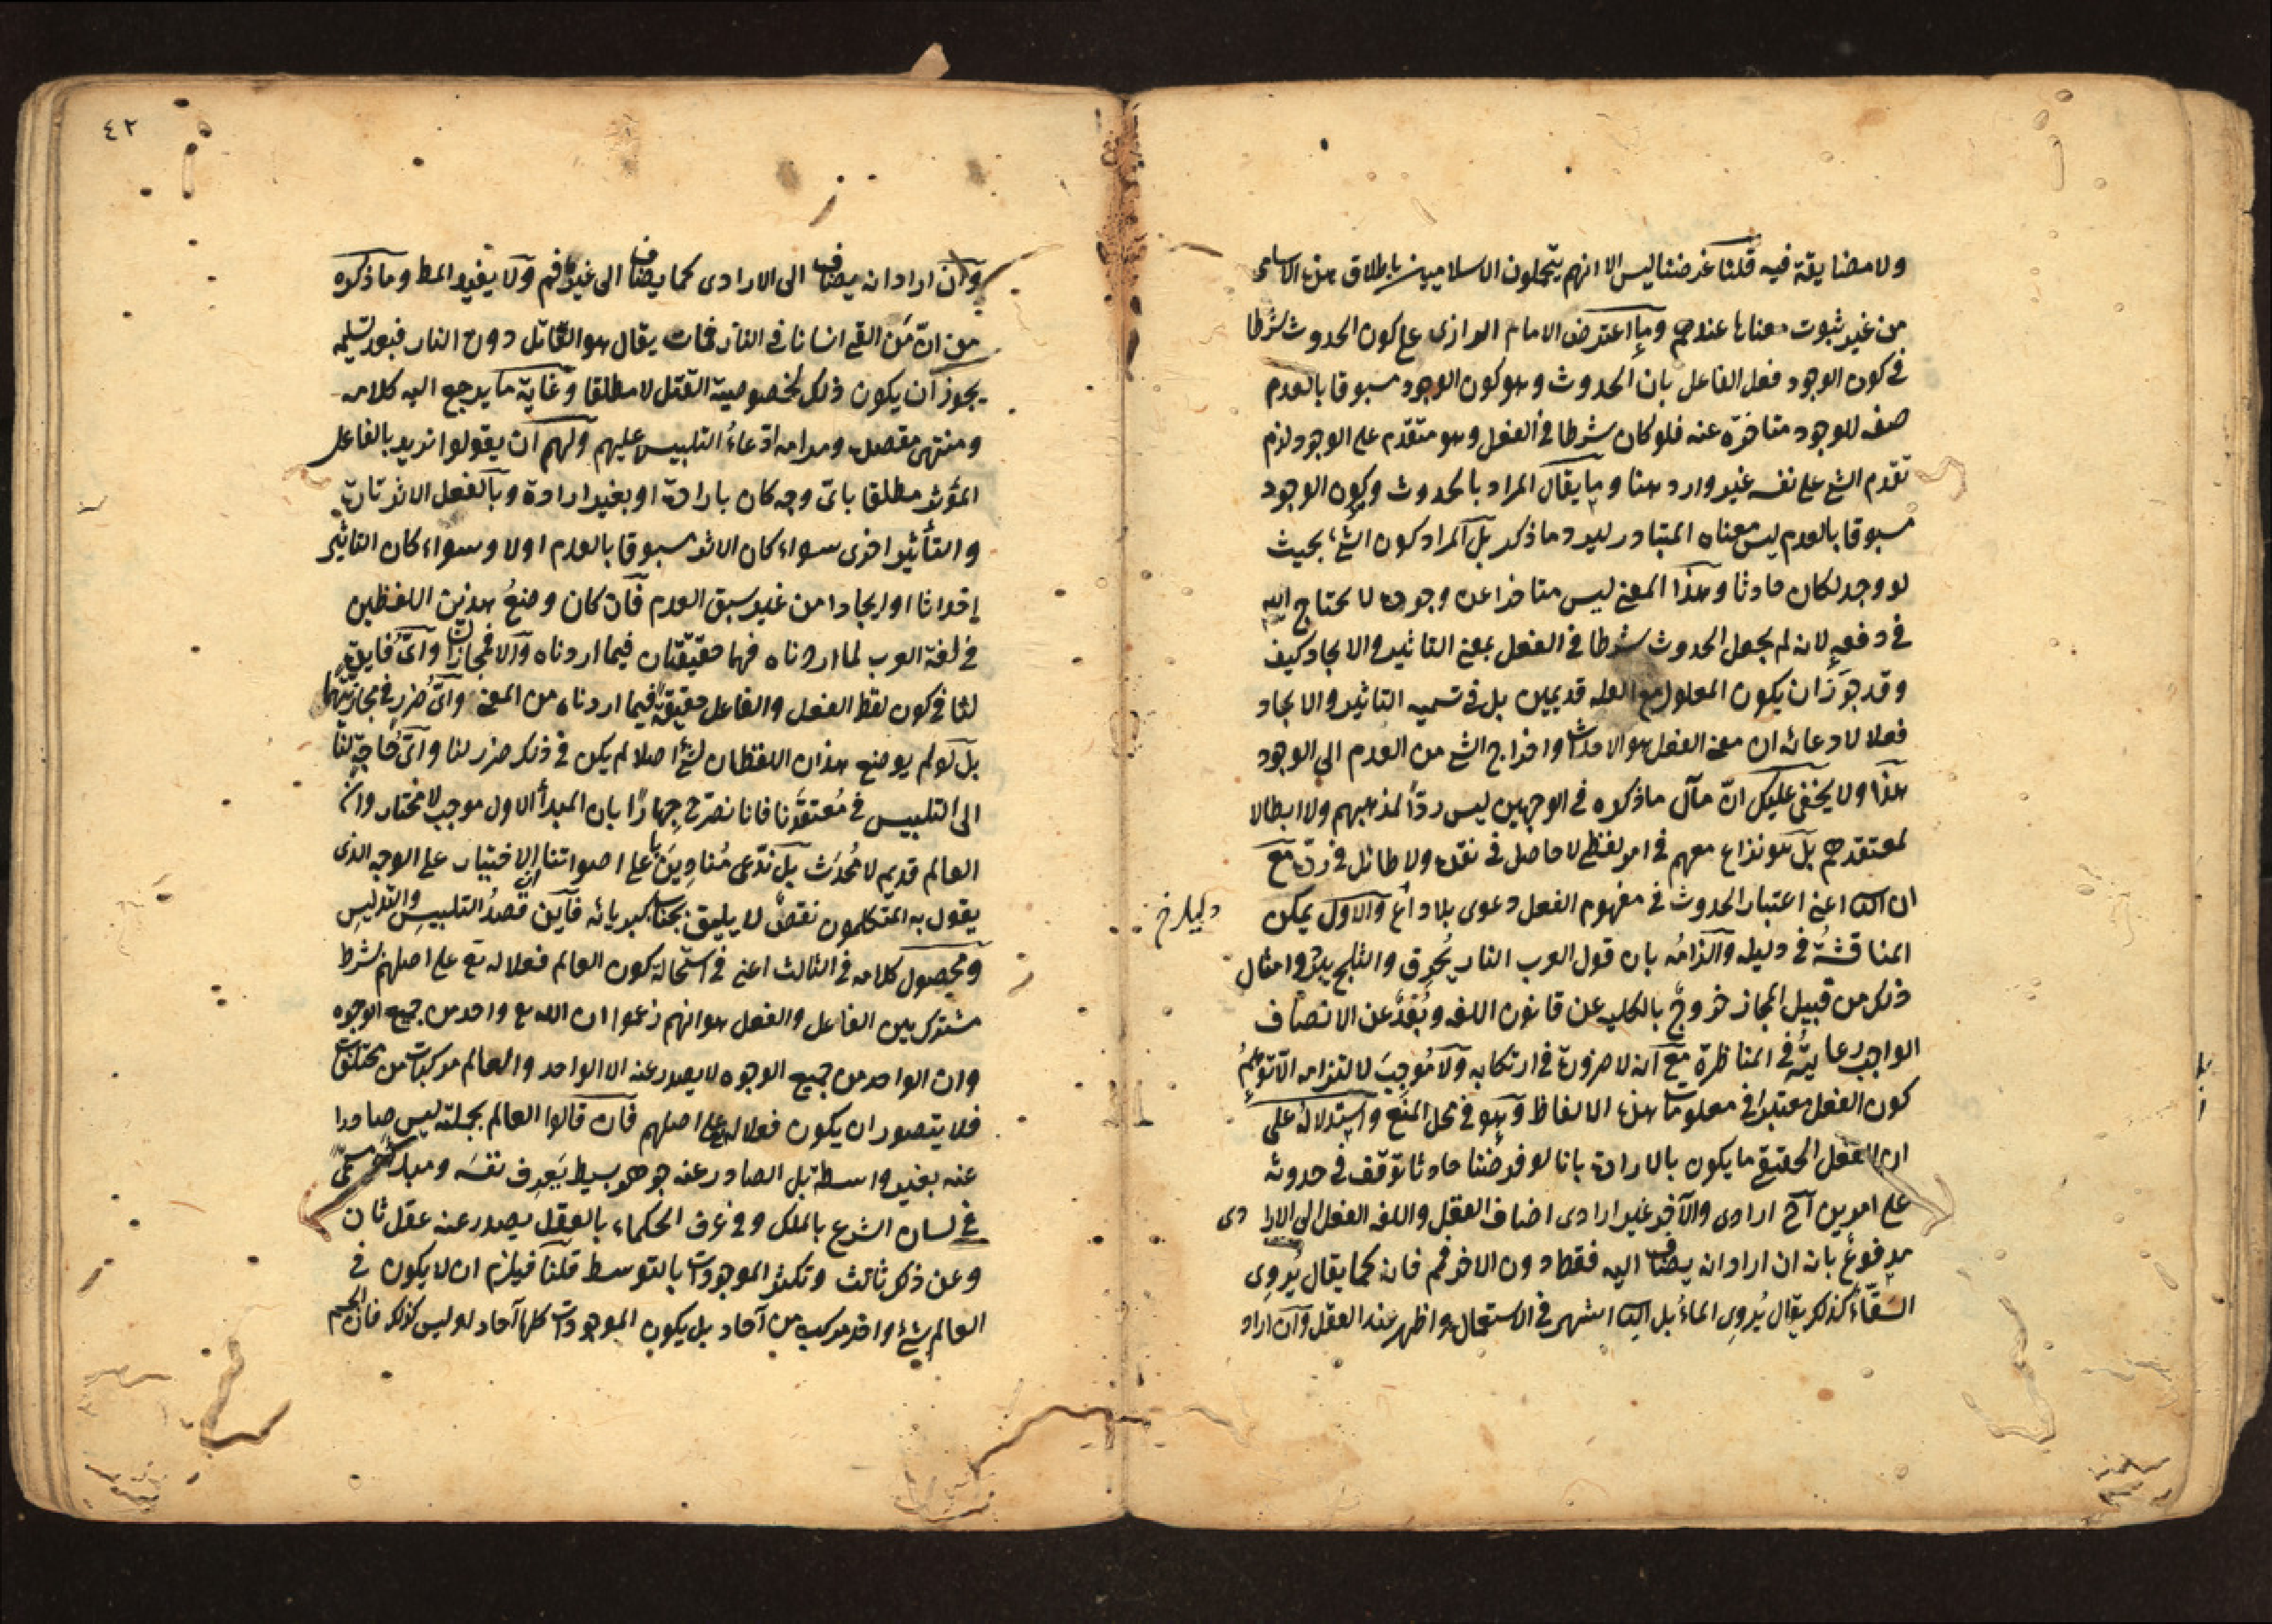 ولا مضايقة فيه قلنا غرضنا ليس الا انهم يتجملون الاسلاميين باطلاق هذه الاسامى
من غير ثبوت معناها عندهم وما اعترض الامام الرازى على كون الحدوث شرطا
فى كون الوجود فعل الفاعل بان الحدوث وهو كون الوجود مسبوقا بالعدم
صفة للوجود متاخرة عنه فلو كان شرطا فى الفعل وهو متقدم على الوجود لزم
تقدم الشئ على نفسه غير وارد هنا وما يقال المراد بالحدوث وكون الوجود
مسبوقا بالعدم ليس معناه المتبادر ليرد ما ذكر بل المراد كون الشئ بحيث
لو وجد لكان حادثا وهذا المعنى ليس متاخرا عن وجوده لا يحتاج اليه
فى دفعه لانه لم يجعل الحدوث شرطا فى الفعل بمعنى التاثير والايجاد كيف
وقد جوّز ان يكون المعلول مع العلة قديمين بل فى تسمية التاثير والايجاد
فعلا لادعائه ان معنى الفعل هو الاحداث واخراج الشئ من العدم الى الوجود
هذا ولا يخفى عليك انّ مآل ماذكره فى الوجهين ليس ردّا لمذاهبهم ولا ابطالا
لمعتقدهم بل هو نزاع معهم فى امر لفظى لا حاصل فى نقله ولا طائل فى ردّه مع
ان الثا اعنى اعتبار الحدوث فى مفهوم الفعل دعوى بلا داع والاول يمكن
المناقشةُ فى دليله والزامُه بان قول العرب النار يُحرق والثلج يبرّد وامثال
ذلك من قبيل المجاز خروجٌ بالكلية عن قانون اللغة وبُعدٌ عن الانصاف
الواجب رعايتُه فى المناظرة مع انه لا ضرورة فى ارتكابه ولا مُوجِبَ لالتزامه الا توهّمُ
كون الفعل معتبرا فى معلومات هذه الالفاظ وهو فى محل المنع واستدلاله على
ان الفعل الحقيقى ما يكون بالارادة بانا لو فرضنا حادثا توقف فى حدوثه
على امرين آح ارادى والآخر غير ارادى اضاف العقل واللغة الفعل الى الارادى
مدفوعٌ بانه ان اراد انه يضاف اليه فقط دون الاخر فمم فانه كما يقال يُروِى
السقّاءُ كذلك يقال يُروِى الماءُ بل الثا اشهر فى الاستعمال واظهر عند العقل وان اراد
دليله خ
٤٢
وان اراد انه يضاف الى الارادى كما يضاف الى غيره فمم ولا يفيد المط وما ذكره
من انّ مَن القى انسانا فى النار فمات يقال هو القاتل دون النار فبعد تسليمه
يجوز ان يكون ذلك لخصوصية القتل لا مطلقا وغاية ما يرجع اليه كلامه
ومنتهى مقصده ومرامه ادّعاءُ التلبيس عليهم ولهم ان يقولوا نريد بالفاعل
المؤثر مطلقا باىّ وجه كان بارادة او بغير ارادة وبالفعل الاثر تارة
والتأثير اخرى سواء كان الاثر مسبوقا بالعدم اولا وسواء كان التاثير
إحداثا او ايجادا من غير سبق العدم فان كان وضعُ هذين اللفظين
فى لغة العرب لما اردناه فهما حقيقتان فيما اردناه والا فمجازان واىّ فايدة
لنا فى كون لفظ الفعل والفاعل حقيقة فيما اردناه من المعنى واىّ ضرر فى مجازيتهما
بل لو لم يوضع هذان اللفظان لشئ اصلا لم يكن فى ذلك ضرر لنا واىّ حاجة لنا
الى التلبيس فى مُعتقدنا فانا نصرّح جِهارًا بان المبدأ الاول موجب لا مختار وانّ
العالم قديم لا مُحدَث بل ندّعى مُنادِينَ باعلى اصواتنا ان الاختيار على الوجه الذى
يقول به المتكلمون نقصٌ لا يليق بجناب كبريائه فاين قصدُ التلبيس والتدليس
ومحصول كلامه فى الثالث اعنى فى استحالة كون العالم فعلا له تع على اصلهم بشرط
مشترك بين الفاعل والفعل هو انهم زعموا ان الله تع واحد من جميع الوجوه
وان الواحد من جميع الوجوه لا يصدر عنه الا الواحد والعالم مركبات من مختلفات
فلا يتصور ان يكون فعلا له تع على اصلهم فان قالوا العالم بجملته ليس صادرا
عنه بغير واسطة بل الصادر عنه جوهر بسيط يَعرِف نفسَه ومبدأه يسمى
فى لسان الشرع بالملك وفى عُرف الحكماء بالعقل يصدر عنه عقل ثان
وعن ذلك ثالث وتكثر الموجودات بالتوسط قلنا فيلزم ان لا يكون فى
العالم شئ واحد مركب من آحاد بل يكون الموجودات كلها آحاد او ليس كذلك فان الجسم